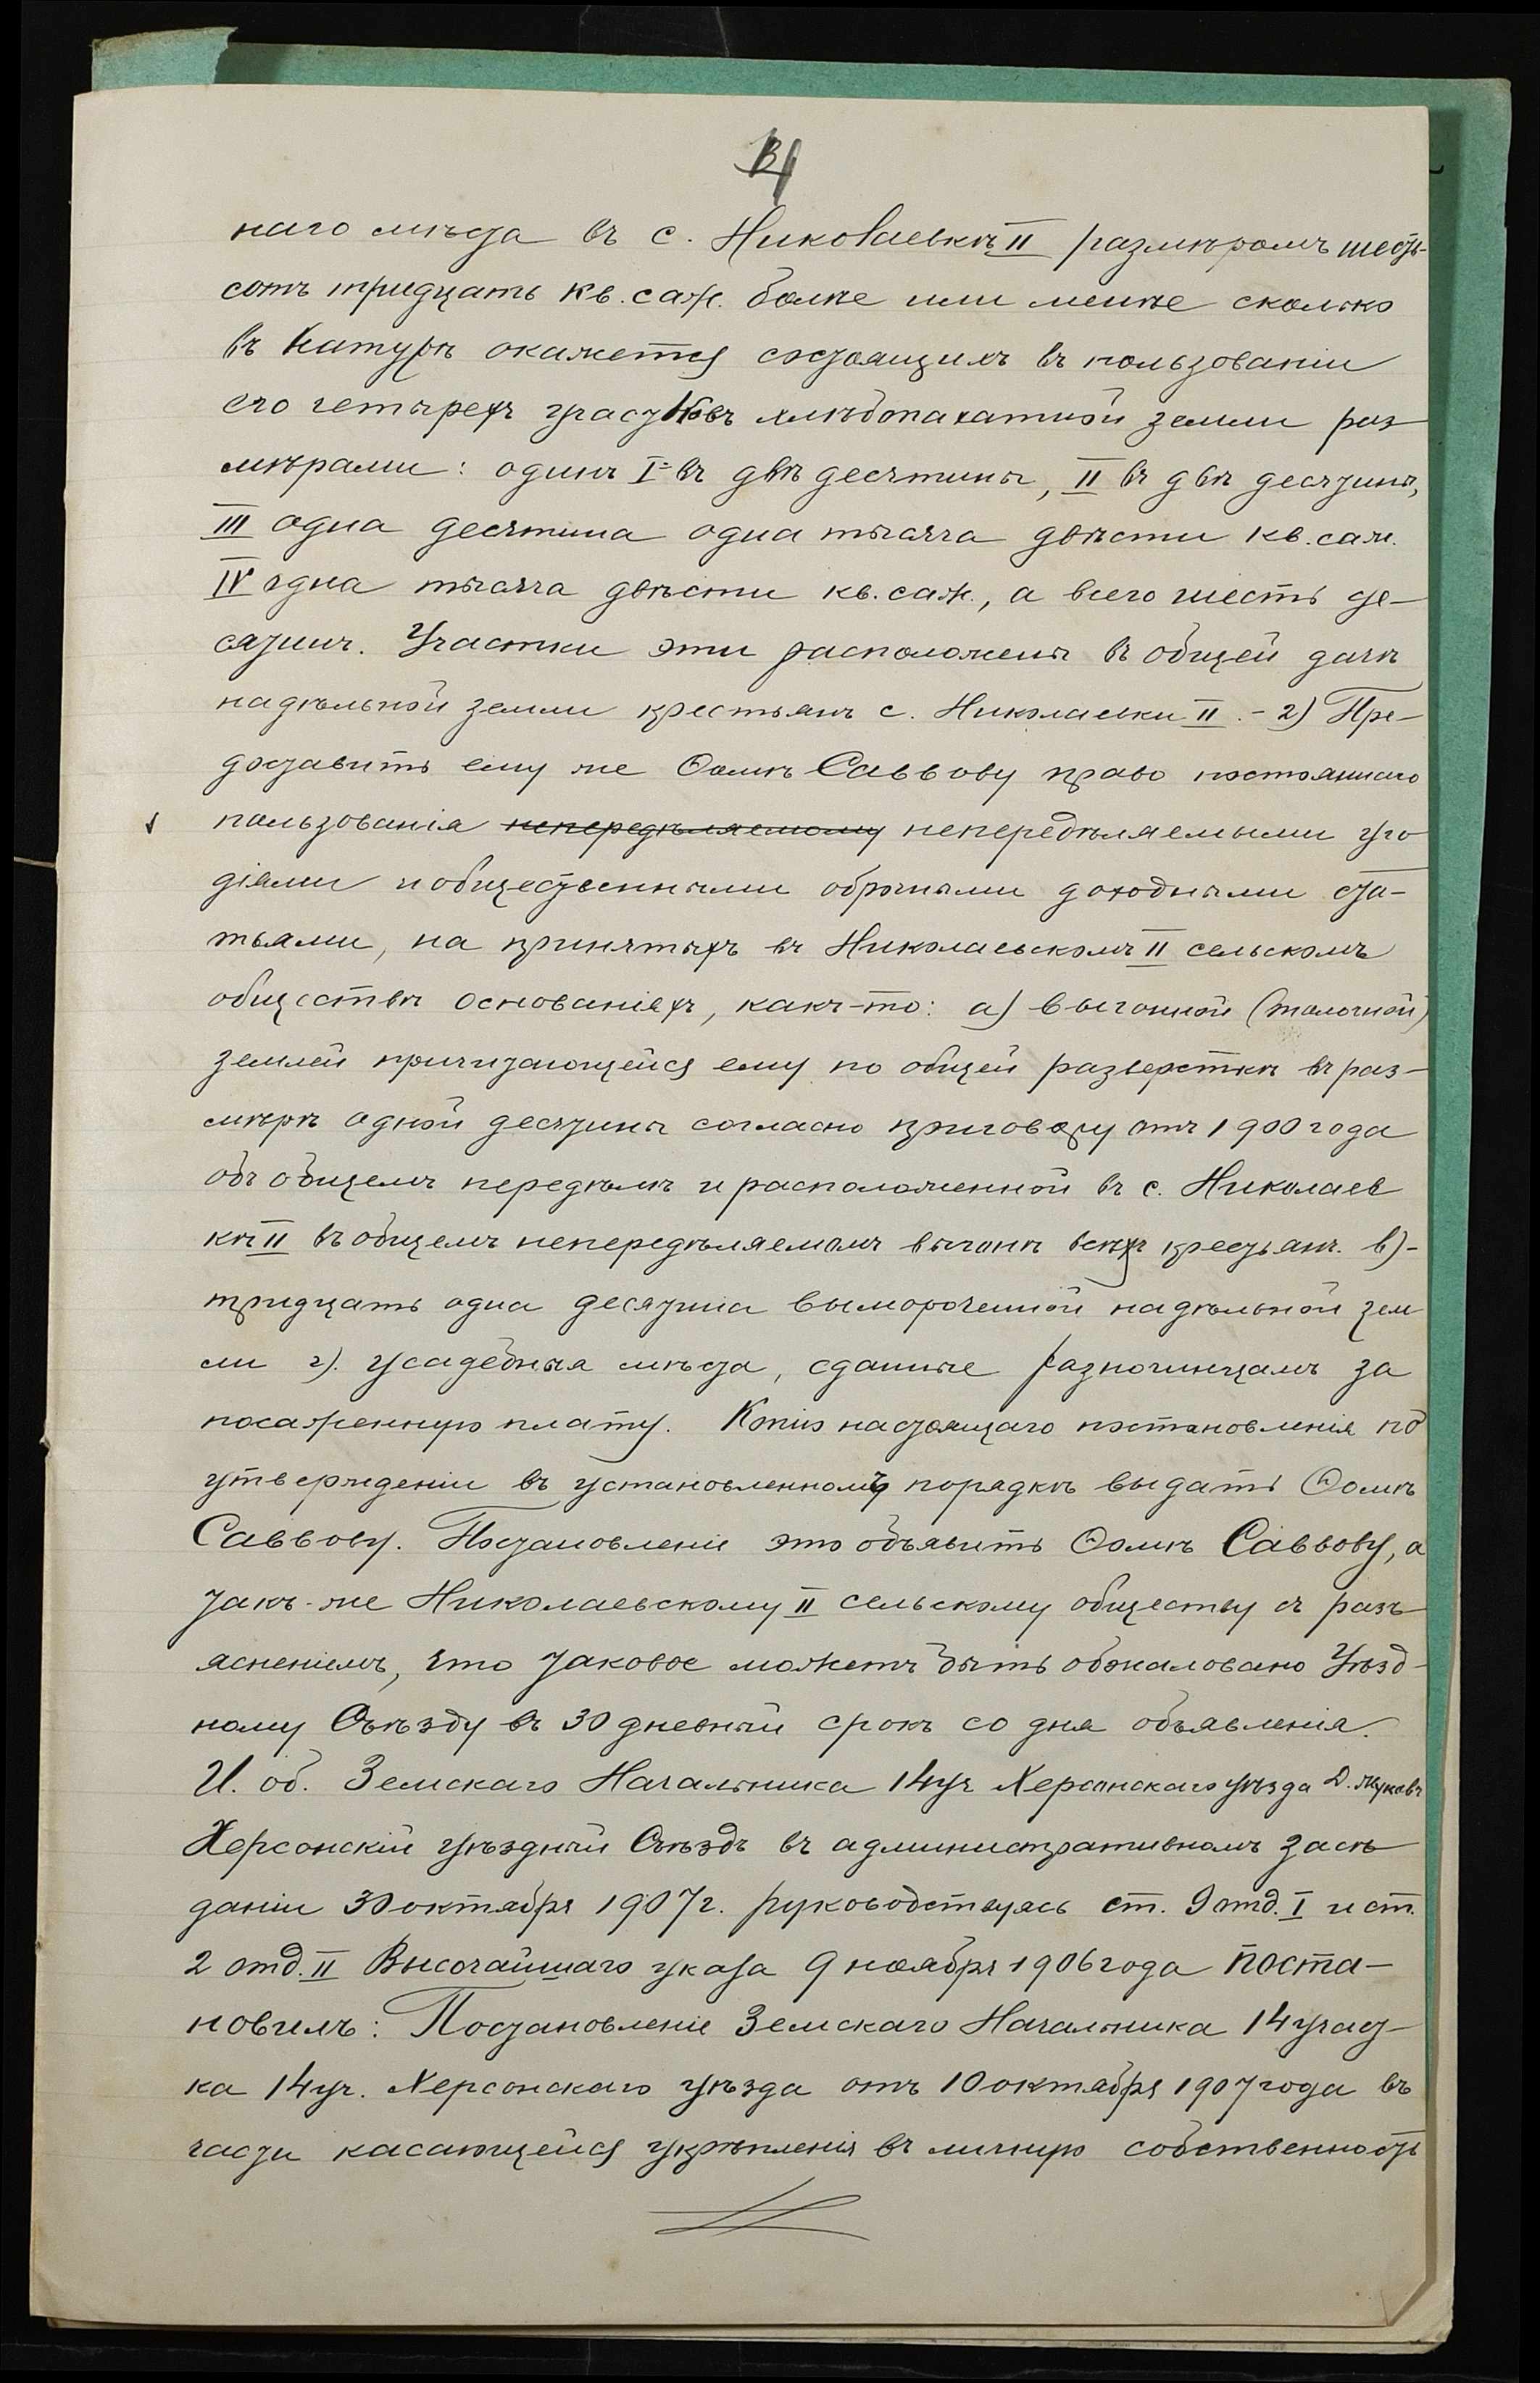 наго мѣста въ с. Николаевкѣ II размѣромъ шесть-
сотъ тридцать кв. саж. болѣе или менѣе сколько
въ натурѣ окажется состоящимъ въ пользованіи
его четырехъ участковъ хлѣбопахатной земли раз-
мѣрами: одинъ I въ двѣ десятины, II въ двѣ десятины,
III одна десятина одна тысяча двѣсти кв. саж.
IV одна тысяча двѣсти кв. саж., а всего шесть де-
сятинъ. Участки эти расположены въ общей дачѣ
надѣльной земли крестьянъ с. Николаевки II. - 2) Пре-
доставить ему же Ѳомѣ Саввову право постояннаго
пользованія непередѣляемому непередѣляемыми уго
діями и общественными оброчными доходными ста-
тьями, на принятыхъ въ Николаевскомъ II сельскомъ
обществѣ основаніяхъ, какъ-то: а) выгонной (толочной)
землей причитающейся ему по общей разверсткѣ въ раз-
мѣрѣ одной десятины согласно приговору отъ 1900 года
объ общемъ передѣлѣ и расположенной въ с. Николаев
кѣ II въ общемъ непередѣляемомъ выгонѣ всѣхъ крестьянъ. в)-
тридцать одна десятина вымороченной надѣльной зем
ли г). усадебныя мѣста, сданные разночинцамъ за
посаженную плату. Копію настоящаго постановленія по
утвержденіи въ установленномъ порядкѣ выдать Ѳомѣ
Саввову. Постановленіе это объявить Ѳомѣ Саввову, а
такъ-же Николаевскому II сельскому обществу съ разъ
ясненіемъ, что таковое можетъ быть обжаловано Уѣзд-
ному Съѣзду въ 30 дневный срокъ со дня объявленія.
И. об. Земскаго Начальника 14 уч Херсонскаго уѣзда Д. Жуковъ
Херсонскій уѣздный Съѣздъ въ административномъ засѣ
даніи 30 октября 1907 г. руководствуясь ст. 9 отд. I и ст.
2 отд. II Высочайшаго указа 9 ноября 1906 года поста-
новилъ: Постановленіе Земскаго Начальника 14 участ-
ка 14 уч. Херсонскаго уѣзда отъ 10 октября 1907 года въ
части касающейся укрѣпленія въ личную собственность